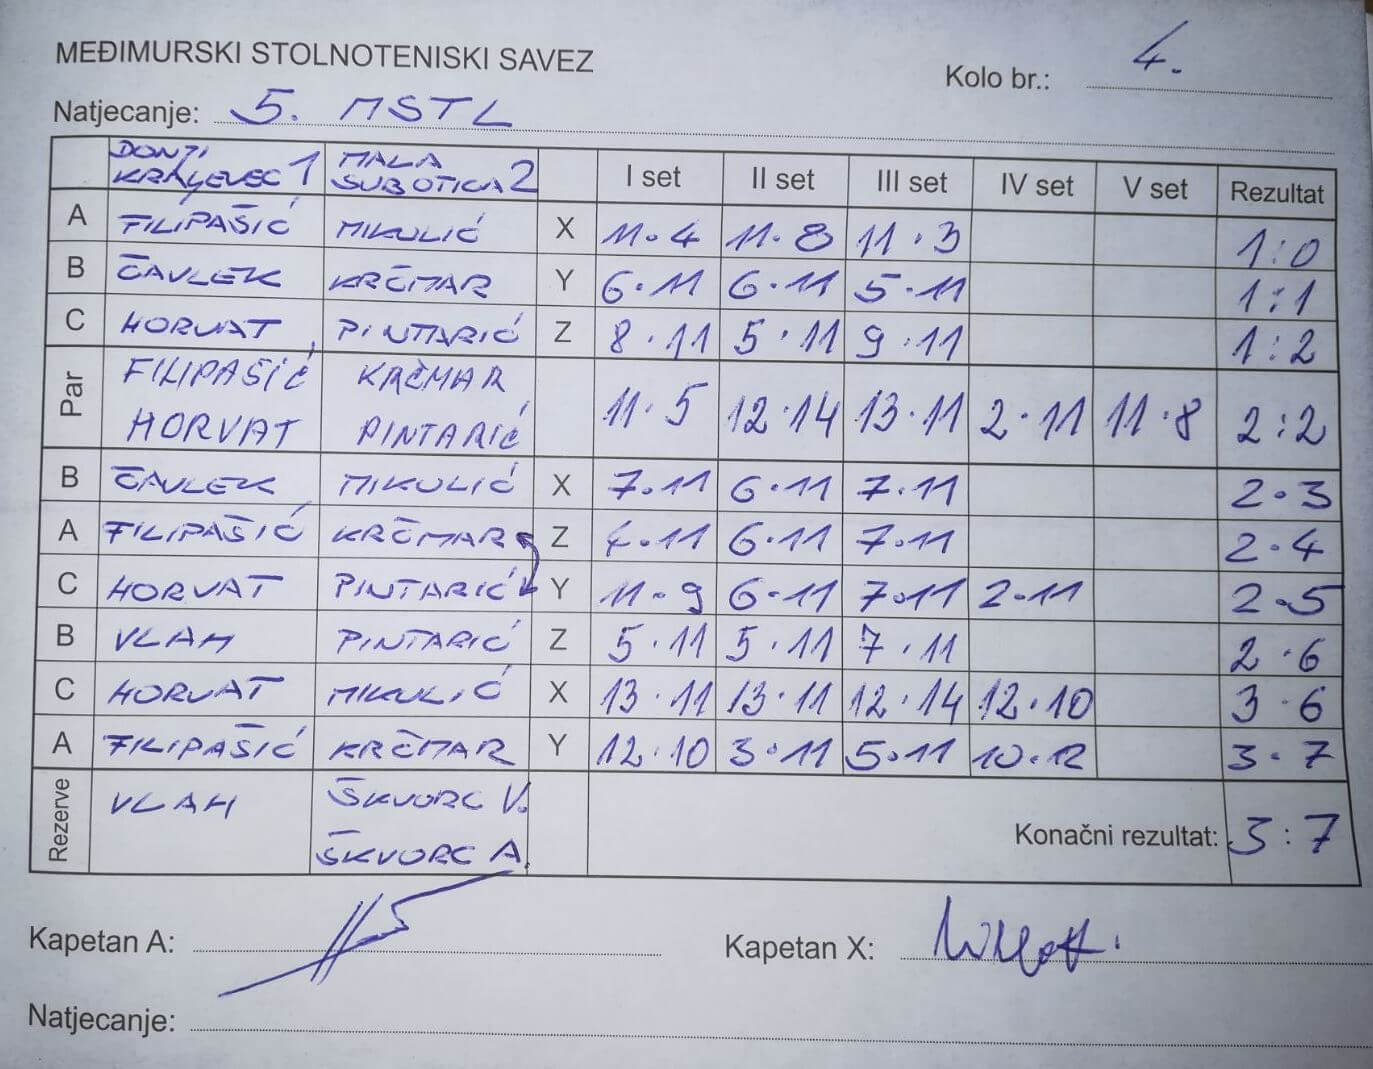 MEĐIMURSKI STOLNOTENISKI SAVEZ
Kolo br.: 4.
Natjecanje: 5. MSTL
DONJI KRALJEVEC 1 MALA SUBOTICA 2 I set II set III set IV set V set Rezultat
A FILIPAŠIĆ MIKULIĆ X 11.4 11.8 11.3 1:0
B ČAVLEK KRČMAR Y 6.11 6.11 5.11 1:1
C HORVAT PINTARIĆ Z 8.11 5.11 9.11 1:2
Par FILIPAŠIĆ KRČMAR
HORVAT PINTARIĆ 11.5 12.14 13.11 2.11 11.8 2:2
B ČAVLEK MIKULIĆ X 7.11 6.11 7.11 2.3
A FILIPAŠIĆ KRČMAR Z 4.11 6.11 7.11 2.4
C HORVAT PINTARIĆ Y 11.9 6.11 7.11 2.11 2.5
B VLAH PINTARIĆ Z 5.11 5.11 7.11 2.6
C HORVAT MIKULIĆ X 13.11 13.11 12.14 12.10 3.6
A FILIPAŠIĆ KRČMAR Y 12.10 3.11 5.11 10.12 3.7
Rezerve VLAH ŠKVORC V.
ŠKVORC A.
Konačni rezultat: 3:7
Kapetan A:
Kapetan X:
Natjecanje: